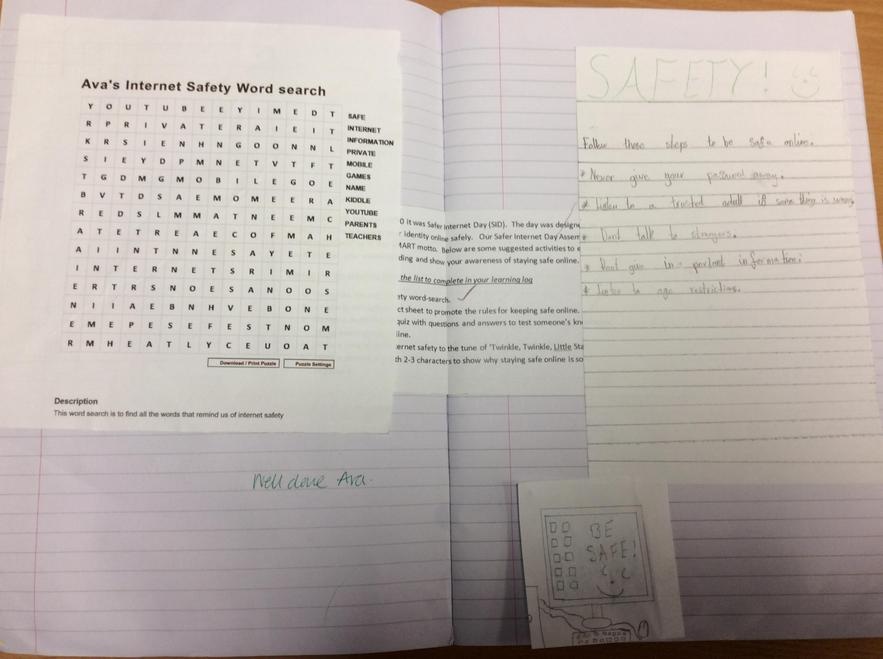 Ava's Internet Safety Word search
Y O U T U B E E Y I M E D T
R P R I V A T E R A I E I T
K R S I E N H N G O O N N L
S I E Y D P M N E T V T F T
T G D M G M O B I L E G O E
B V T D S A E M O M E E R A
R E D S L M M A T N E E M C
A T E T R E A E C O F M A H
A I I N T N N E S A Y E T E
I N T E R N E T S R I M I R
E R T R S N O E S A N O O S
N I I A E B N H V E B O N E
E M E P E S E F E S T N O M
R M H E A T L Y C E U O A T
SAFE
INTERNET
INFORMATION
PRIVATE
MOBILE
GAMES
NAME
KIDDLE
YOUTUBE
PARENTS
TEACHERS
Download / Print Puzzle
Puzzle Settings
Description
This word search is to find all the words that remind us of internet safety
Well done Ava.
0 it was Safer Internet Day (SID). The day was
identity online safely. Our Safer Internet Day
motto. Below are some suggested activities to
ding and show your awareness of staying safe online.
the list to complete in your learning log
ety word-search.
ct sheet to promote the rules for keeping safe online.
quiz with questions and answers to test someone's
line.
ernet safety to the tune of 'Twinkle, Twinkle, Little
th 2-3 characters to show why staying safe online is so
SAFETY!
Follow these steps to be safe online.
* Never give your password away.
* Listen to a trusted adult if some thing is wrong
* Dont talk to strangers.
* Dont give in-portant information.
* Listen to age restrictions.
BE
SAFE!